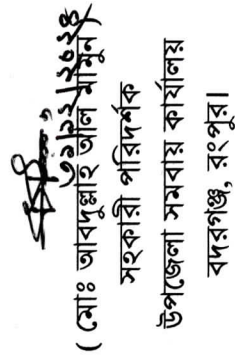 ৩১/১২/২০২৪
( মোঃ আবদুল্লাহ আল মামুন )
সহকারী পরিদর্শক
উপজেলা সমবায় কার্যালয়
বদরগঞ্জ, রংপুর।